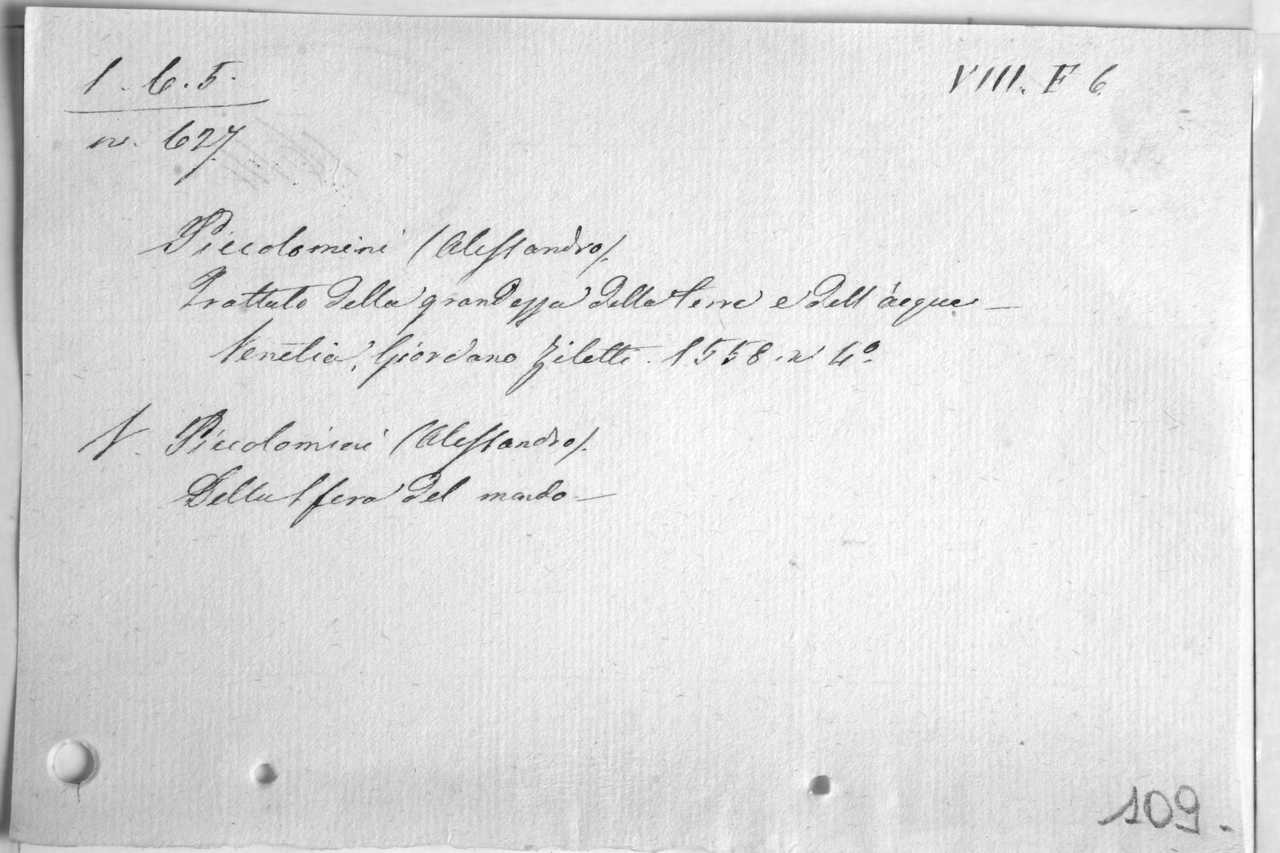 1. 6. 5.
VIII. F 6
n. 627
Piccolomini (Alessandro).
Trattato della grandezza della terra e dell'acqua —
Venetia, Giordano Ziletti. 1558. in 4º
V. Piccolomini (Alessandro).
Della Sfera del mondo —
109.